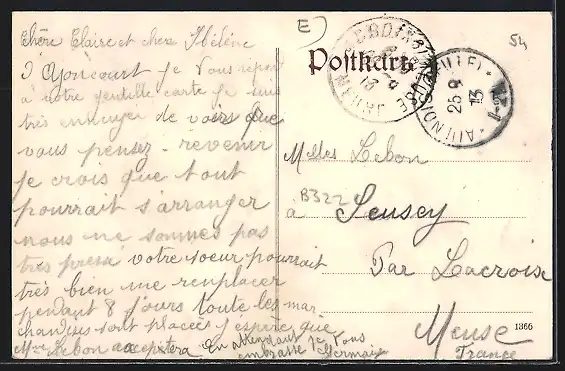 Chère Claire et chère Hélène
D'Ajoncourt je vous répont
à votre gentille carte je suis
très ennuyer de vois que
vous pensez revenir
je crois que tout
pourrait s'arranger
nous ne sommes pas
très pressé votre soeur pourrait
très bien me remplacer
pendant 8 jours toute les mar
chandises sont placées j'espère que
Mme Lebon acceptera
En attendant je Vous
embrasse Germaine
E
54
Postkarte
LACROIX MEUSE
25 9
13
Melles Lebon
B322
à Seusey
Par Lacroix
Meuse
France
1366